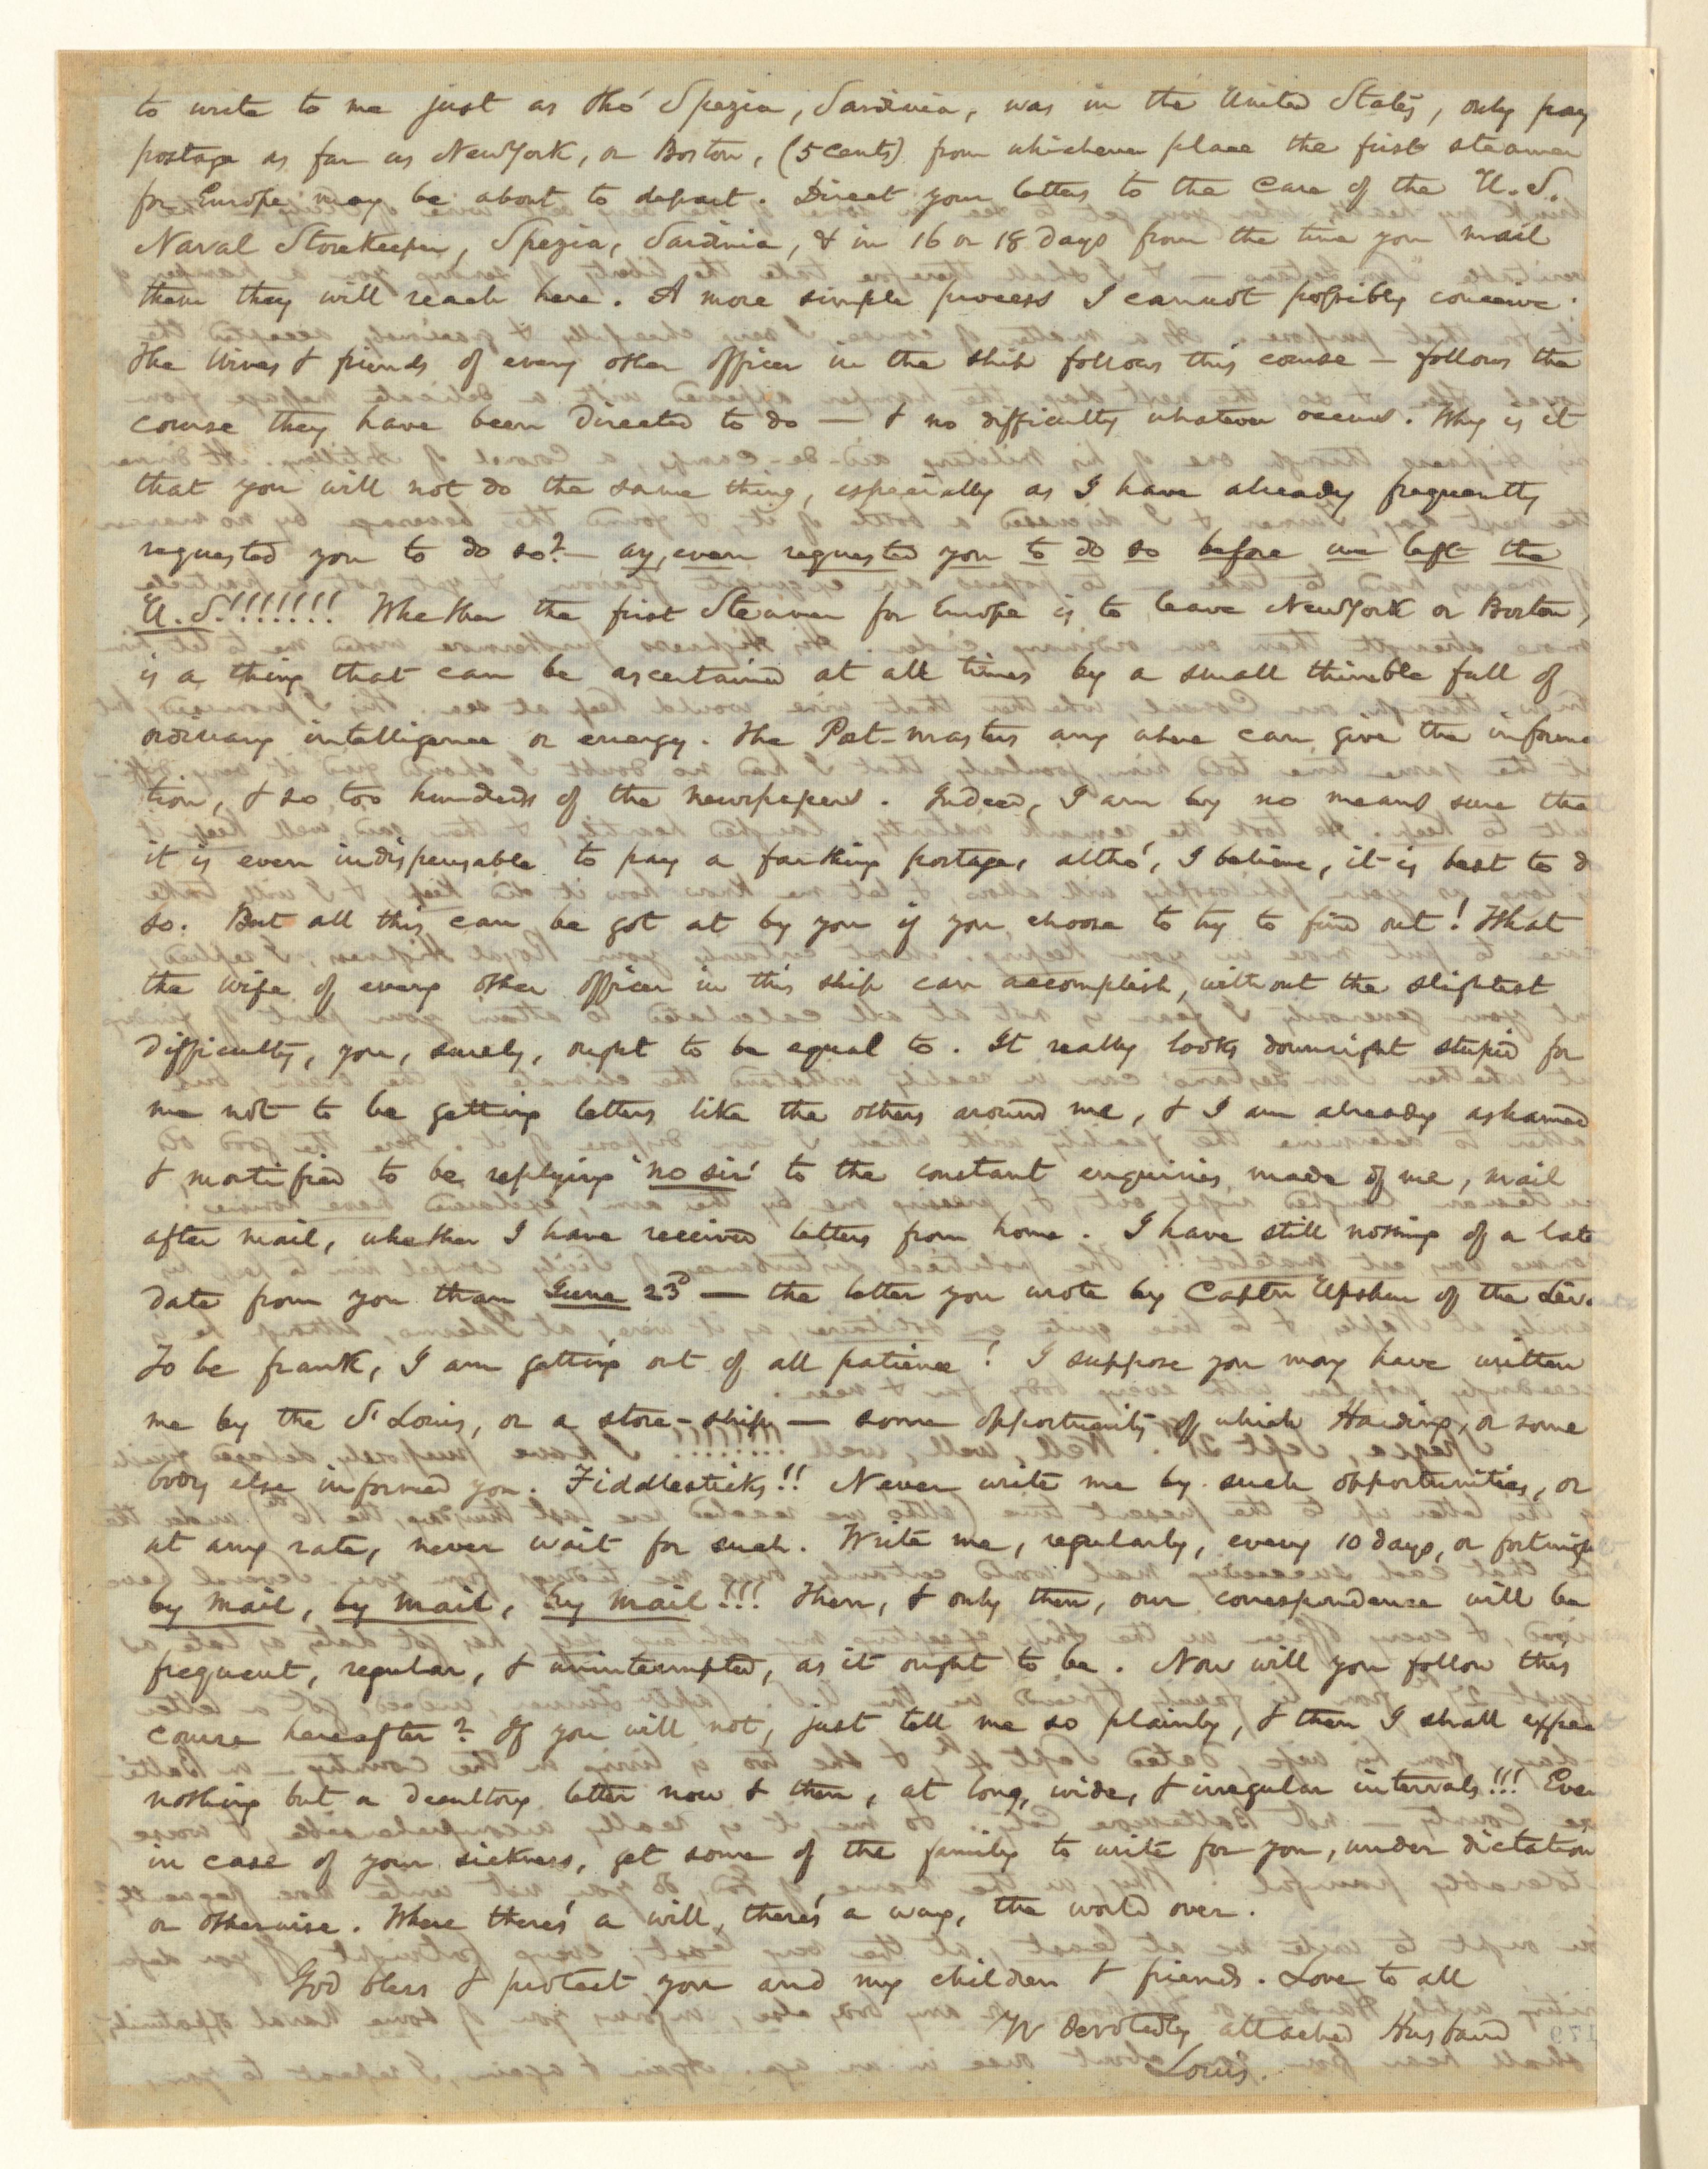 to write to me just as tho' Spezia, Sardinia, was in the United States, only pay
postage as far as New York, or Boston, (5 cents) from whichever place the first steamer
for Europe may be about to depart. Direct your letters to the care of the U.S.
Naval Storekeeper, Spezia, Sardinia, & in 16 or 18 days from the time you mail
them they will reach here. A more simple process I cannot possibly conceive.
The wives & friends of every other officer in the ship follows this course — follows the
course they have been directed to do — & no difficulty whatever occurs. Why is it
that you will not do the same thing, especially as I have already frequently
requested you to do so? — ay, even requested you to do so before we left the
U.S.!!!!!!! Whether the first Steamer for Europe is to leave New York or Boston,
is a thing that can be ascertained at all times by a small thimble full of
ordinary intelligence or energy. The Post-Masters any where can give the informa
tion, & so too hundreds of the newspapers. Indeed, I am by no means sure tha
it is even indispensable to pay a farthing postage, altho', I believe, it is best to d
so. But all this can be got at by you if you choose to try to find out! What
the wife of every other officer in this ship can accomplish, without the slightest
difficulty, you, surely, ought to be equal to. It really looks downright stupid for
me not to be getting letters like the others around me, & I am already ashamed
& mortified to be replying 'no sir' to the constant enquiries made of me, mail
after mail, whether I have received letters from home. I have still nothing of a late
date from you than June 23d — the letter you wrote by Captn Upshur of the Lev
To be frank, I am getting out of all patience! I suppose you may have written
me by the St Louis, or a store-ship — some opportunity of which Harding, or some
body else informed you. Fiddlesticks!! Never write me by such opportunities, or
at any rate, never wait for such. Write me, regularly, every 10 days, or fortnigh
by mail, by mail, by mail!!! Then, & only then, our correspondence will be
frequent, regular, & uninterrupted, as it ought to be. Now will you follow this
course hereafter? If you will not, just tell me so plainly, & then I shall expec
nothing but a desultory letter now & then, at long, wide, & irregular intervals!!! Even
in case of your sickness, get some of the family to write for you, under dictation
or otherwise. Where there's a will, there's a way, the world over.
God bless & protect you and my children & friends. Love to all
Yr devotedly attached Husband
Louis.